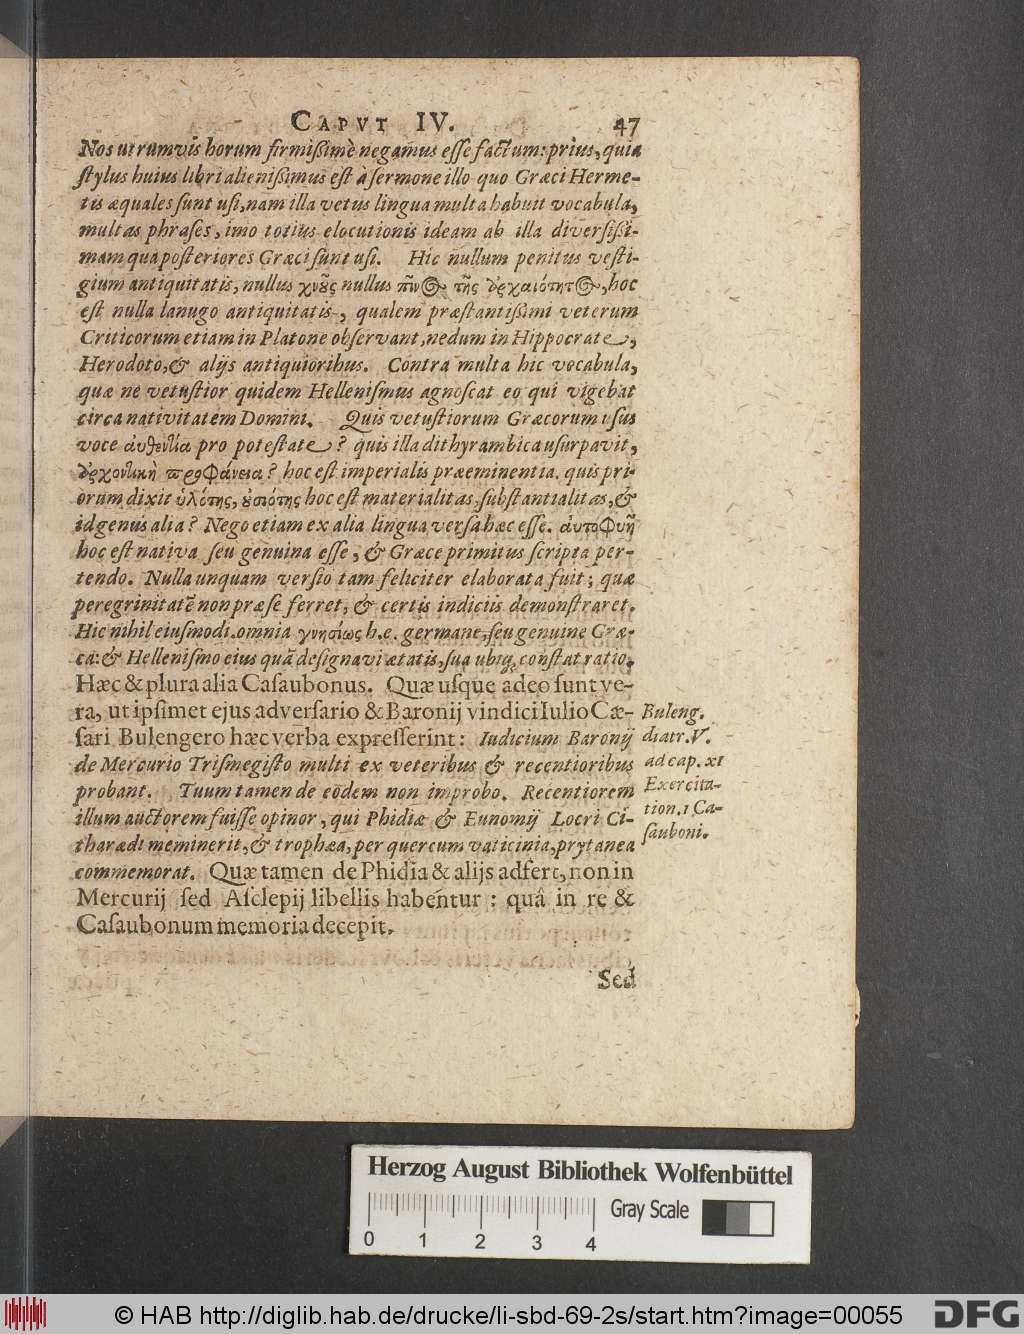 CAPVT IV. 47
Nos utrumvis horum firmißimè negamus esse factum: prius, quia
stylus huius libri alienißimus est à sermone illo quo Græci Herme-
tis æquales sunt usi, nam illa vetus lingua multa habuit vocabula,
multas phrases, imo totius elocutionis ideam ab illa diversißi-
mam qua posteriores Græci sunt usi. Hic nullum penitus vesti-
gium antiquitatis, nullus χνοῦς nullus πῖνος τῆς ἀρχαιότητος, hoc
est nulla lanugo antiquitatis, qualem præstantißimi veterum
Criticorum etiam in Platone observant, nedum in Hippocrate,
Herodoto, & alijs antiquioribus. Contra multa hic vocabula,
quæ ne vetustior quidem Hellenismus agnoscat eo qui vigebat
circa nativitatem Domini. Quis vetustiorum Græcorum usus
voce αὐθεντία pro potestate? quis illa dithyrambica usurpavit,
ἀρχοντικὴ προφάνεια? hoc est imperialis præeminentia. quis pri-
orum dixit ὑλότης, οὐσιότης hoc est materialitas, substantialitas, &
id genus alia? Nego etiam ex alia lingua versa hæc esse. αὐτοφυῆ
hoc est nativa seu genuina esse, & Græce primitus scripta per-
tendo. Nulla unquam versio tam feliciter elaborata fuit; quæ
peregrinitatẽ non præ se ferret, & certis indiciis demonstraret.
Hic nihil eiusmodi. omnia γνησίως h.e. germane, seu genuine Græ-
ca: & Hellenismo eius quã designavi ætatis, sua ubiq; constat ratio.
Hæc & plura alia Casaubonus. Quæ usque adeo sunt ve-
ra, ut ipsimet ejus adversario & Baronij vindici Iulio Cæ-
sari Bulengero hæc verba expresserint: Iudicium Baronij
de Mercurio Trismegisto multi ex veteribus & recentioribus
probant. Tuum tamen de eodem non improbo. Recentiorem
illum auctorem fuisse opinor, qui Phidiæ & Eunomij Locri Ci-
tharædi meminerit, & trophæa, per quercum vaticinia, prytanea
commemorat. Quæ tamen de Phidia & alijs adfert, non in
Mercurij sed Asclepij libellis habentur: quâ in re &
Casaubonum memoria decepit.
Buleng.
diatr. V.
ad cap. XI
Exercita-
tion. 1 Ca-
sauboni.
Sed
Herzog August Bibliothek Wolfenbüttel
Gray Scale
0 1 2 3 4
© HAB http://diglib.hab.de/drucke/li-sbd-69-2s/start.htm?image=00055
DFG